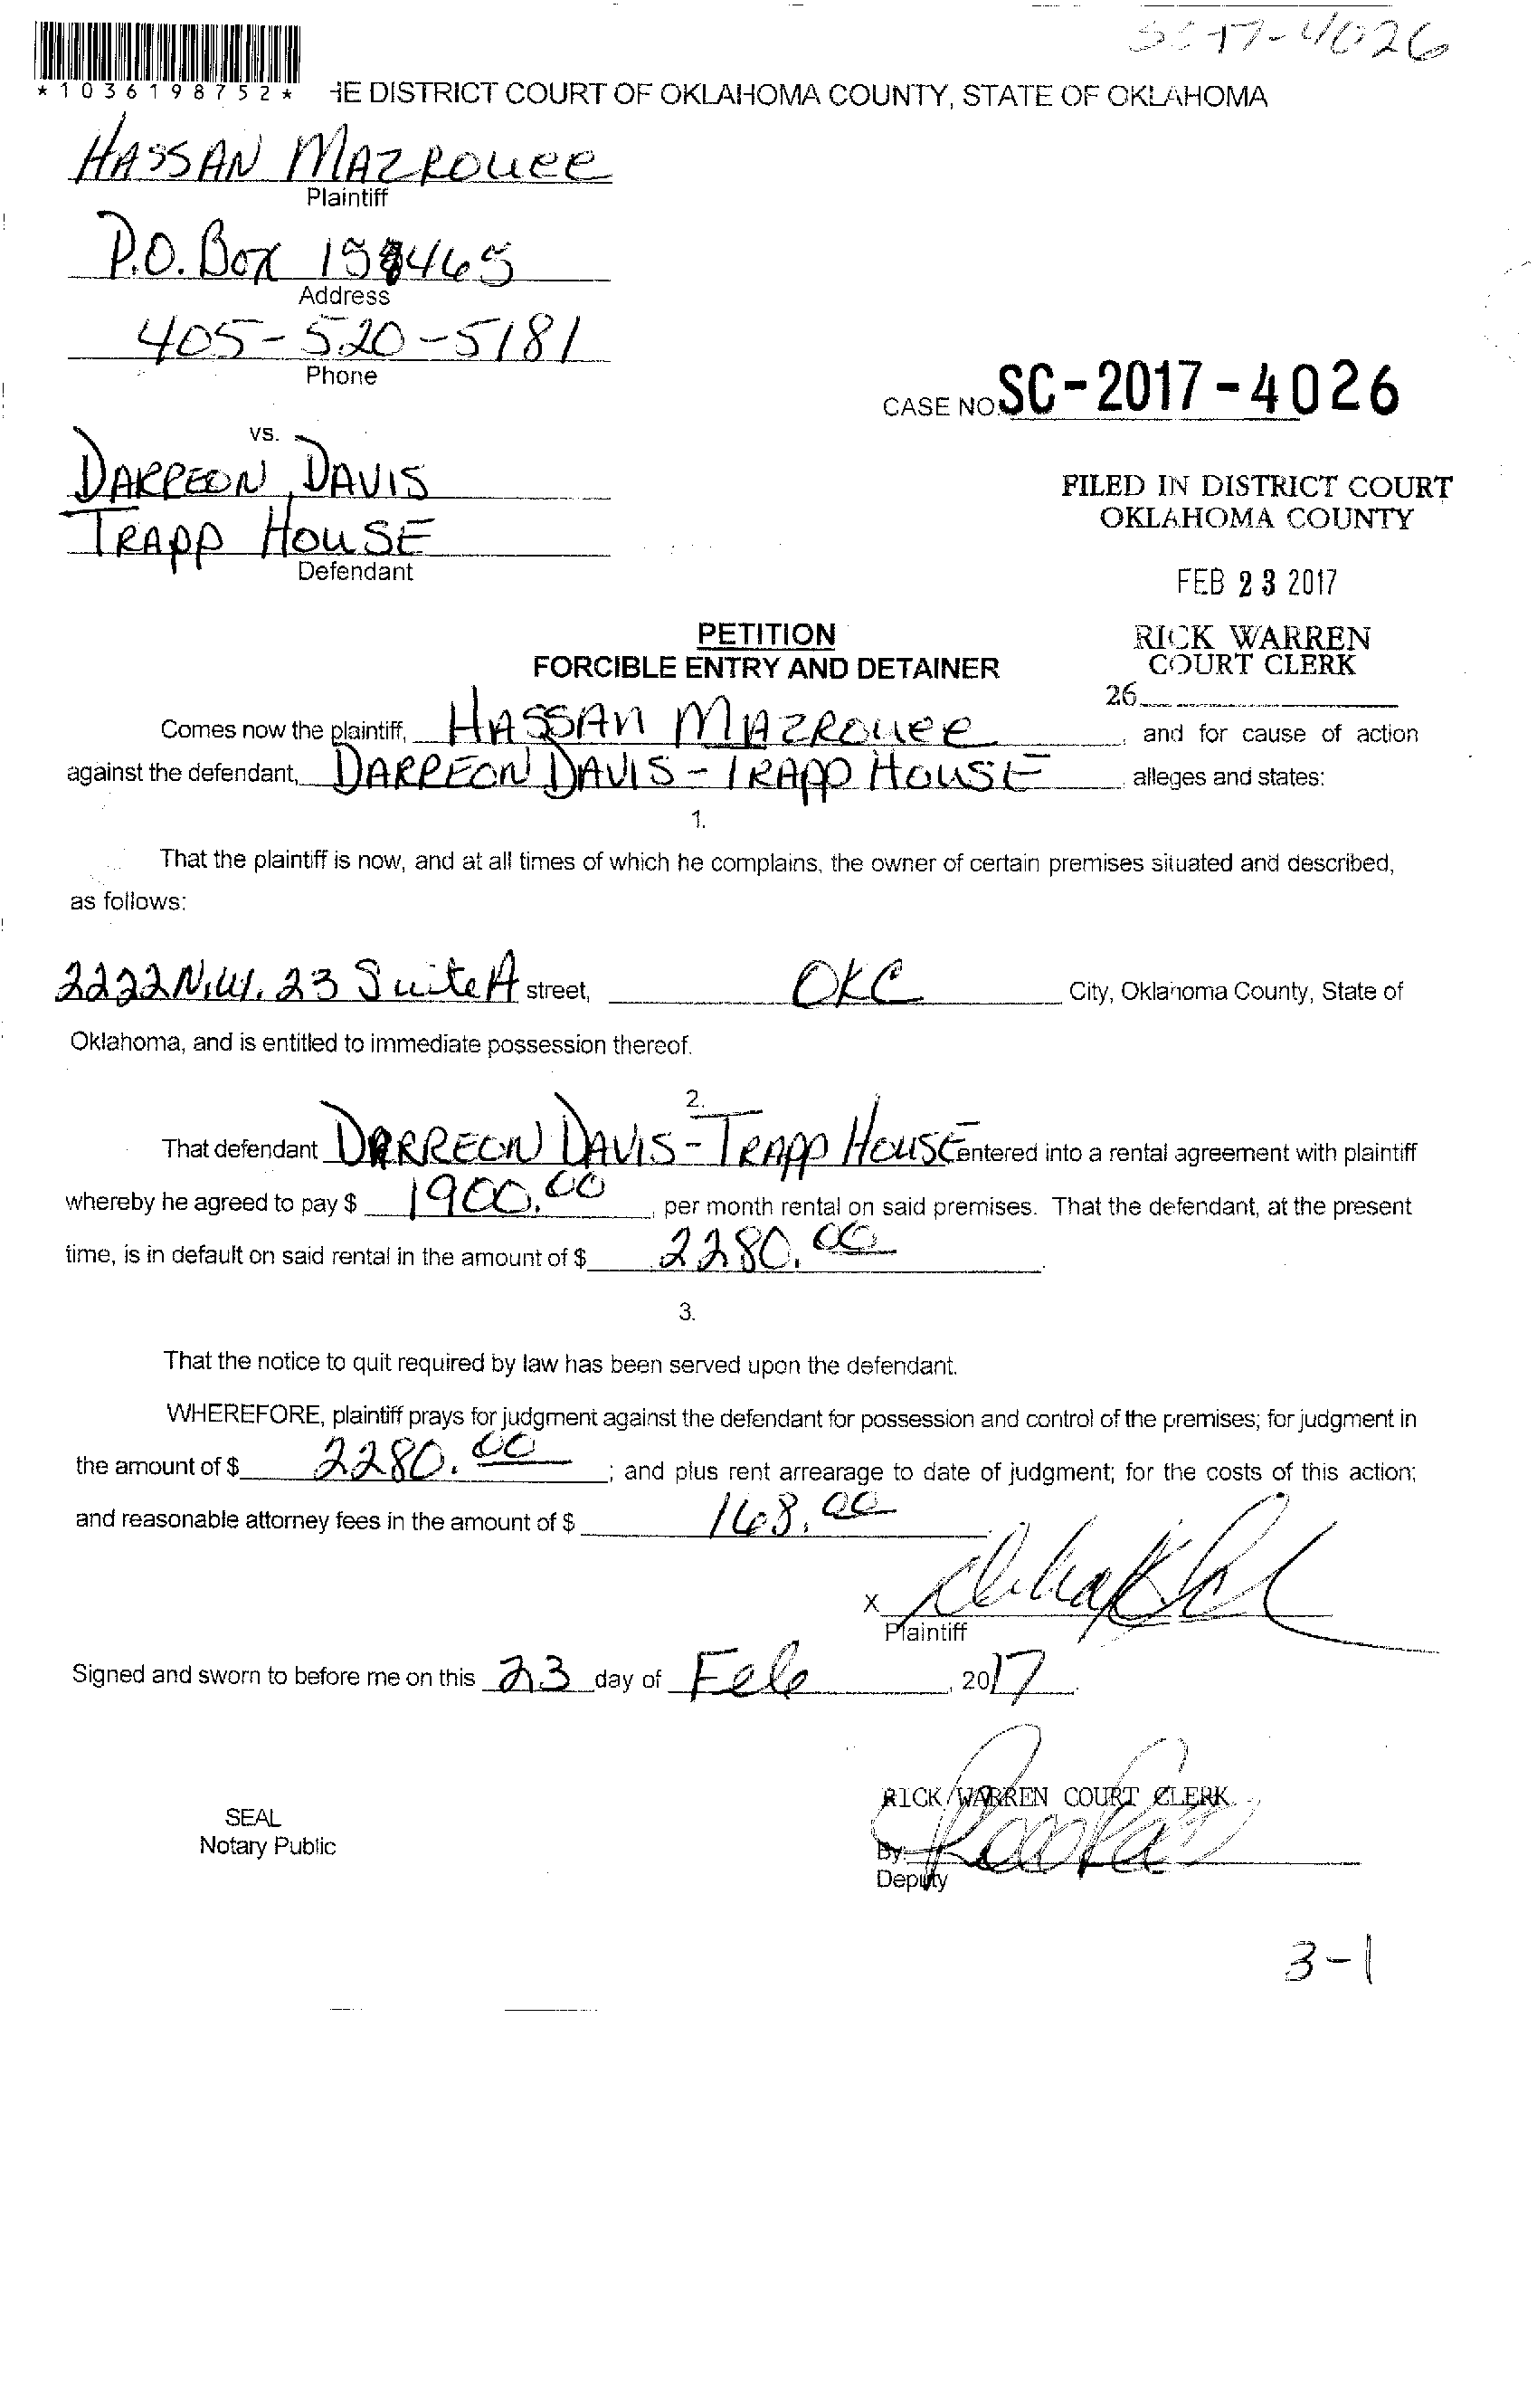 SC-17-4026
*1036198752* HE DISTRICT COURT OF OKLAHOMA COUNTY, STATE OF OKLAHOMA
HASSAN MAZROUEE
Plaintiff
P.O. Box
Address
405-520-5181
Phone
CASE NO. SC-2017-4026
vs.
DARREON DAVIS
TRAPP HOUSE
Defendant
FILED IN DISTRICT COURT
OKLAHOMA COUNTY
FEB 23 2017
RICK WARREN
COURT CLERK
26
PETITION
FORCIBLE ENTRY AND DETAINER
Comes now the plaintiff, HASSAN MAZROUEE, and for cause of action
against the defendant, DARREON DAVIS - TRAPP HOUSE, alleges and states:
1.
That the plaintiff is now, and at all times of which he complains, the owner of certain premises situated and described,
as follows:
2222 N.W. 23 Suite A street, OKC City, Oklahoma County, State of
Oklahoma, and is entitled to immediate possession thereof.
2.
That defendant DARREON DAVIS - TRAPP HOUSE entered into a rental agreement with plaintiff
whereby he agreed to pay $ 1900.00, per month rental on said premises. That the defendant, at the present
time, is in default on said rental in the amount of $ 2280.00.
3.
That the notice to quit required by law has been served upon the defendant.
WHEREFORE, plaintiff prays for judgment against the defendant for possession and control of the premises; for judgment in
the amount of $ 2280.00; and plus rent arrearage to date of judgment; for the costs of this action;
and reasonable attorney fees in the amount of $ 168.00
X
Plaintiff
Signed and sworn to before me on this 23 day of Feb, 2017.
RICK WARREN COURT CLERK
SEAL
Notary Public
By:
Deputy
3-1